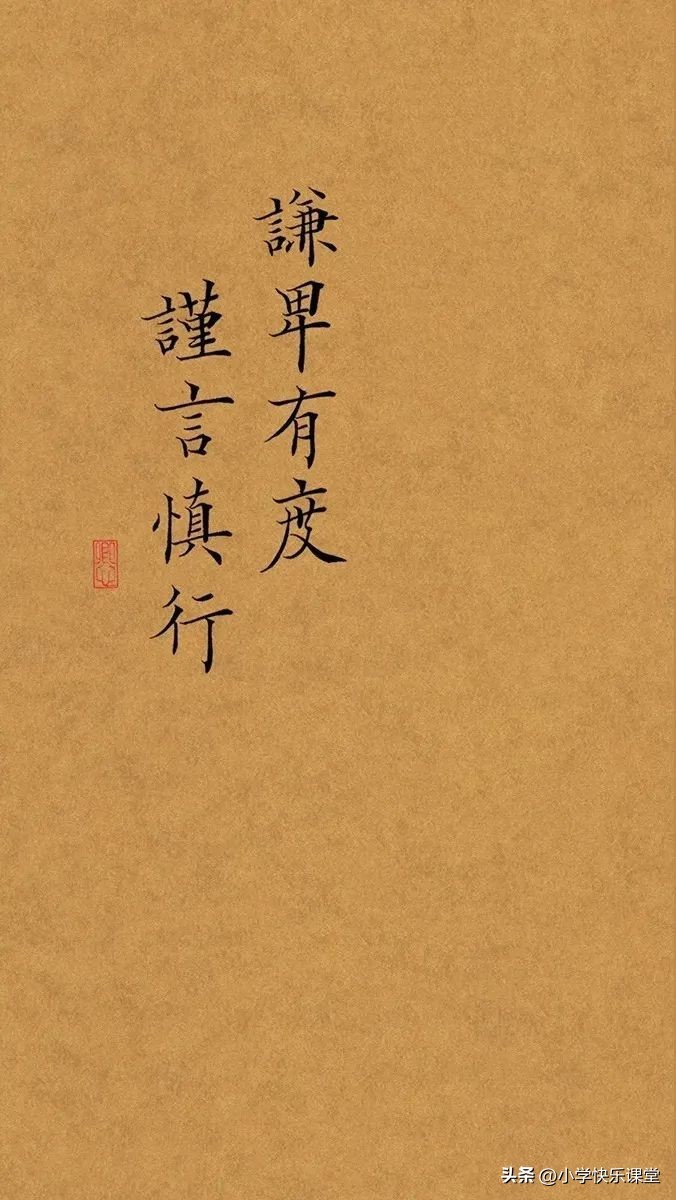 謙卑有度
謹言慎行
头条 @小学快乐课堂